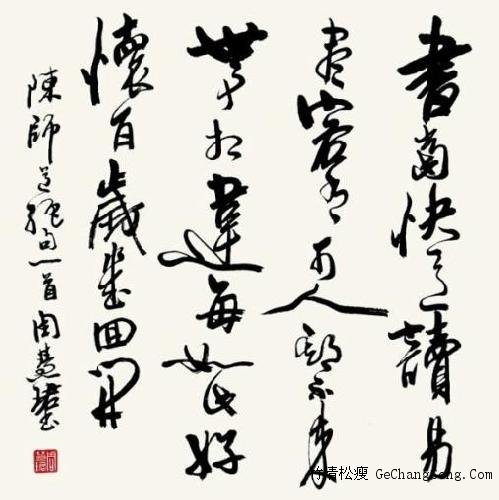 書當快意讀易
盡客有可人期不來
世事相違每如此好
懷百歲幾回開
陳師道絕句一首周慧珺
竹清松瘦 GeChangSong.Com